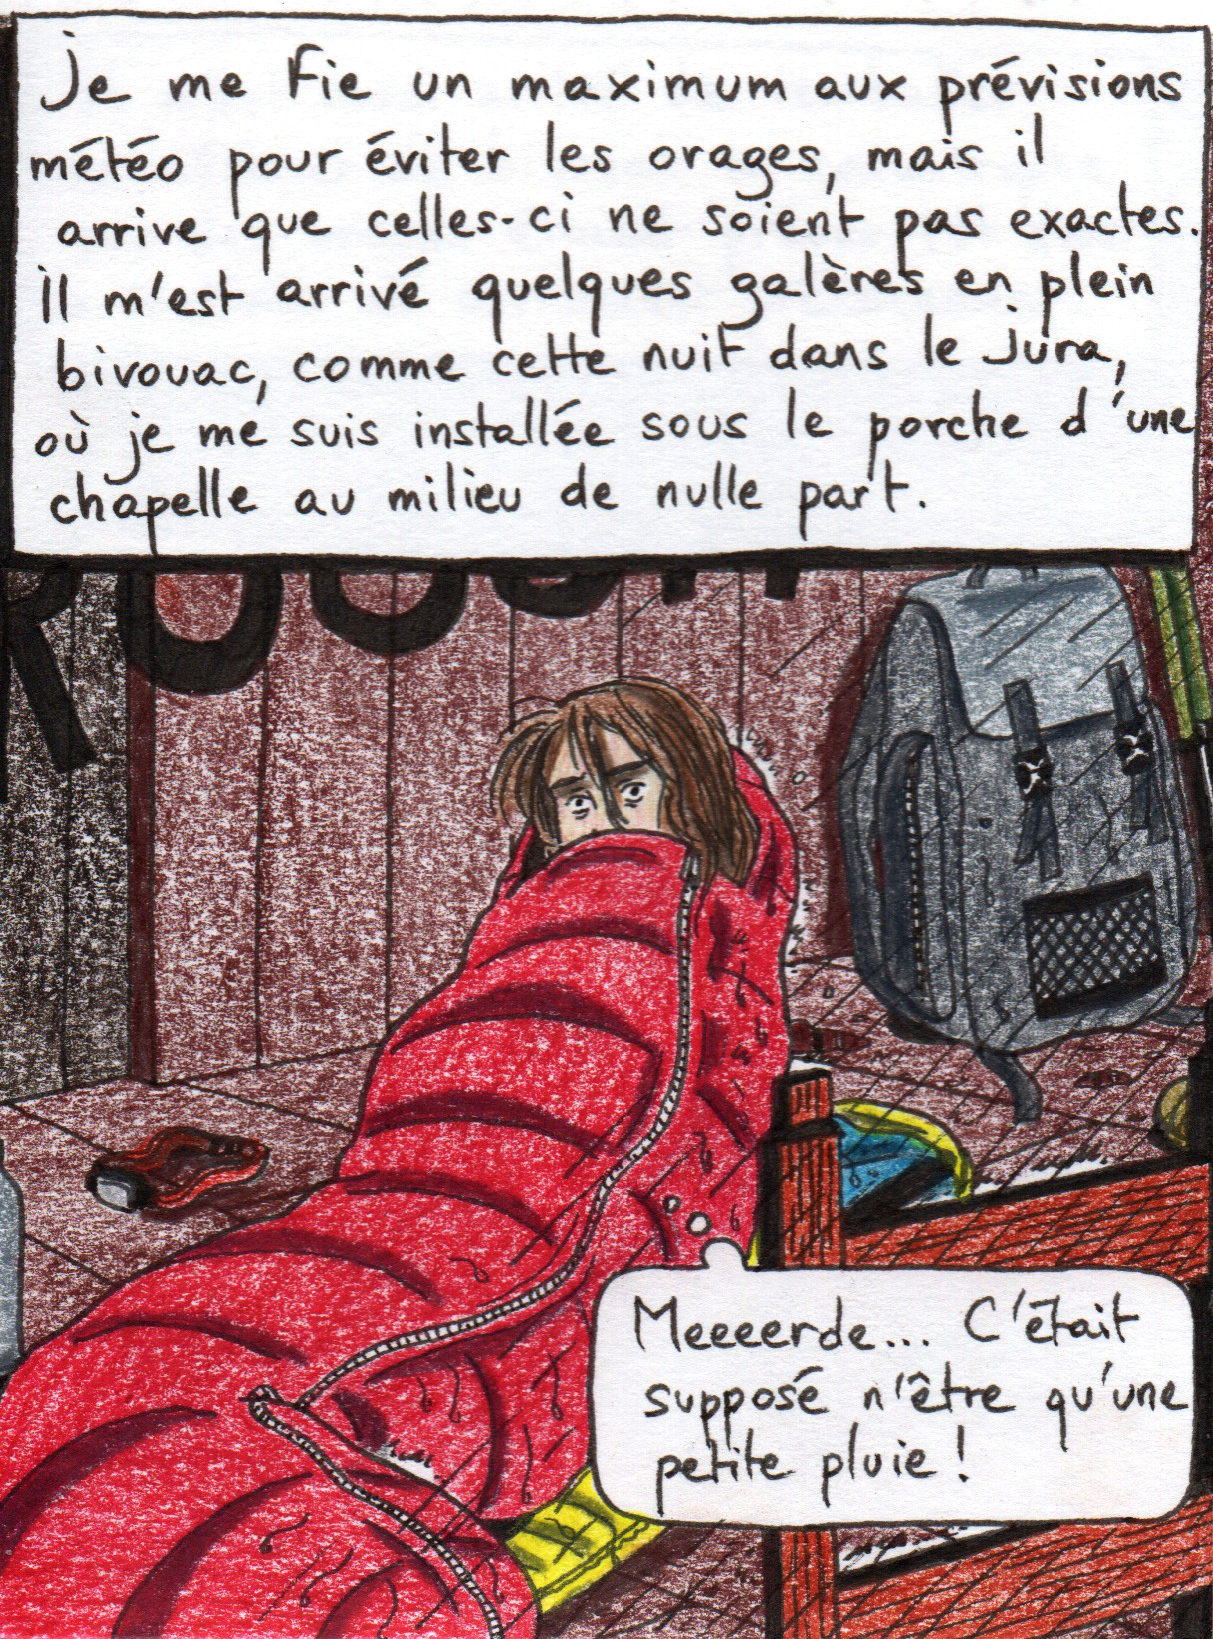 Je me fie un maximum aux prévisions
météo pour éviter les orages, mais il
arrive que celles-ci ne soient pas exactes.
Il m'est arrivé quelques galères en plein
bivouac, comme cette nuit dans le Jura,
où je me suis installée sous le porche d'une
chapelle au milieu de nulle part.
Meeeerde... C'était
supposé n'être qu'une
petite pluie !